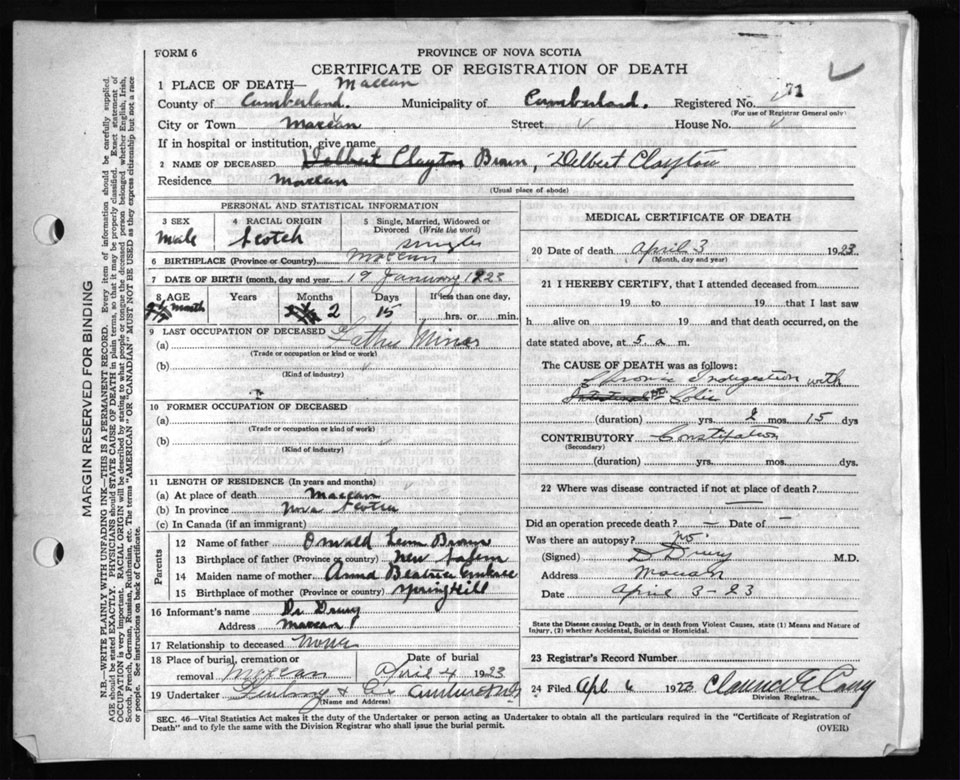 FORM 6
PROVINCE OF NOVA SCOTIA
CERTIFICATE OF REGISTRATION OF DEATH
71
1 PLACE OF DEATH— Maccan
County of Cumberland. Municipality of Cumberland. Registered No.
(For use of Registrar General only)
City or Town Maccan Street House No.
If in hospital or institution, give name
2 NAME OF DECEASED Delbert Clayton Brown, Delbert Clayton
Residence Maccan
(Usual place of abode)
PERSONAL AND STATISTICAL INFORMATION
3 SEX 4 RACIAL ORIGIN 5 Single, Married, Widowed or Divorced (Write the word)
Male Scotch Single
6 BIRTHPLACE (Province or Country) Maccan
7 DATE OF BIRTH (month, day and year) 19 January 1923
8 AGE Years Months Days If less than one day,
month 2 15 hrs. or min.
9 LAST OCCUPATION OF DECEASED
(a) Father Miner
(Trade or occupation or kind or work)
(b)
(Kind of industry)
10 FORMER OCCUPATION OF DECEASED
(a)
(Trade or occupation or kind of work)
(b)
(Kind of industry)
11 LENGTH OF RESIDENCE (In years and months)
(a) At place of death Maccan
(b) In province Nova Scotia
(c) In Canada (if an immigrant)
Parents
12 Name of father Brown
13 Birthplace of father (Province or country) New Salem
14 Maiden name of mother Anna Beatrice
15 Birthplace of mother (Province or country) Springhill
16 Informant's name Dr Drury
Address Maccan
17 Relationship to deceased None
18 Place of burial, cremation or removal Maccan Date of burial April 4 1923
19 Undertaker Furlong & Co Amherst N.S.
(Name and Address)
MEDICAL CERTIFICATE OF DEATH
20 Date of death April 3 1923
(Month, day and year)
21 I HEREBY CERTIFY, that I attended deceased from
19 to 19 that I last saw
h alive on 19 and that death occurred, on the
date stated above, at 5 a m.
The CAUSE OF DEATH was as follows:
Chronic Indigestion with
Intestinal Colic
(duration) yrs. 2 mos. 15 dys
CONTRIBUTORY Constipation
(Secondary)
(duration) yrs. mos. dys.
22 Where was disease contracted if not at place of death?
Did an operation precede death? — Date of —
Was there an autopsy? No.
(Signed) D Drury M.D.
Address Maccan
Date April 3-23
State the Disease causing Death, or in death from Violent Causes, state (1) Means and Nature of
Injury, (2) whether Accidental, Suicidal or Homicidal.
23 Registrar's Record Number
24 Filed Apl 6 1923 Clarence E
Division Registrar.
SEC. 46—Vital Statistics Act makes it the duty of the Undertaker or person acting as Undertaker to obtain all the particulars required in the "Certificate of Registration of
Death" and to fyle the same with the Division Registrar who shall issue the burial permit.
(OVER)
MARGIN RESERVED FOR BINDING
N.B.—WRITE PLAINLY WITH UNFADING INK—THIS IS A PERMANENT RECORD. Every item of information should be carefully supplied.
AGE should be stated EXACTLY. PHYSICIANS should STATE CAUSE OF DEATH in plain terms, so that it may be properly classified. Exact statement of
OCCUPATION is very important. RACIAL ORIGIN will be described by stating to what people or tongue the deceased person belonged whether English, Irish,
Scotch, French, German, Russian, Ruthenian, etc. The terms "AMERICAN" OR "CANADIAN" MUST NOT BE USED as they express citizenship but not a race
or people. See instructions on back of Certificate.